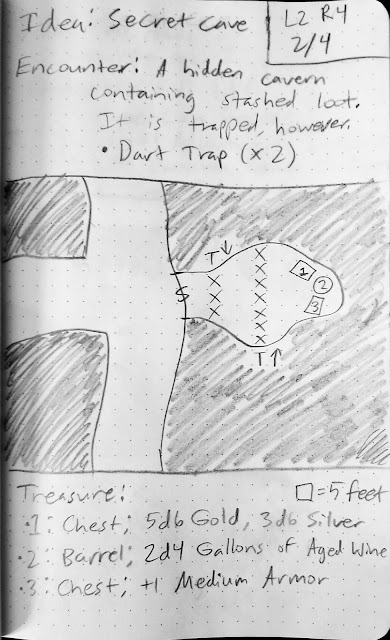 Idea: Secret cave
L2 R4
2/4
Encounter: A hidden cavern
containing stashed loot.
It is trapped, however.
• Dart Trap (x2)
T↓
X X X
X X X X X X X
S
1
2
3
T↑
Treasure: □ = 5 feet
• 1: Chest; 5d6 Gold, 3d6 Silver
• 2: Barrel; 2d4 Gallons of Aged Wine
• 3: Chest; +1 Medium Armor